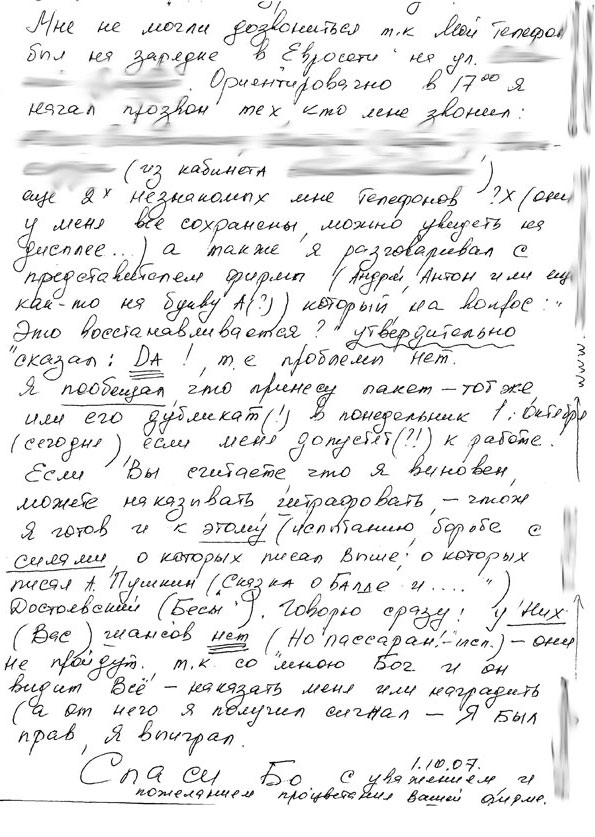 Мне не могли дозвониться т.к мой Телефон
был на зарядке в Евросети на ул.
Ориентировачно в 17⁰⁰ я
начал прозвон тех, кто мне звонил:
(из кабинета )
еще 2х незнакомых мне Телефонов ?х (они
у меня все сохранены, можно увидеть на
дисплее...) а также я разговаривал с
представителем фирмы (Андрей, Антон или ещ
как-то на букву А(?)) который на вопрос: "
Это восстанавливается?" утвердительно
"сказал: DA !, т.е проблемы нет.
Я пообещал, что принесу пакет – тот же
или его дубликат(!) в понедельник 1: Октября
(сегодня) если меня допустят(?!) к работе.
Если Вы считаете что я виновен,
можете наказывать, штрафовать, –
Я готов и к этому (испытанию, борьбе с
силями, о которых писал выше; о которых
писал А. Пушкин ("Сказка о Балде и .... ")
Достоевский (Бесы"). Говорю сразу! у Них
(Вас) шансов нет (Но пассаран! - исп.) – они
не пройдут, т.к. со мною Бог и он
видит Всё – наказать меня или наградить
(а от него я получил сигнал – Я был
прав, Я выиграл.
1.10.07.
Спаси Бо с уважением и
пожеланием процветания вашей фирме.
www.